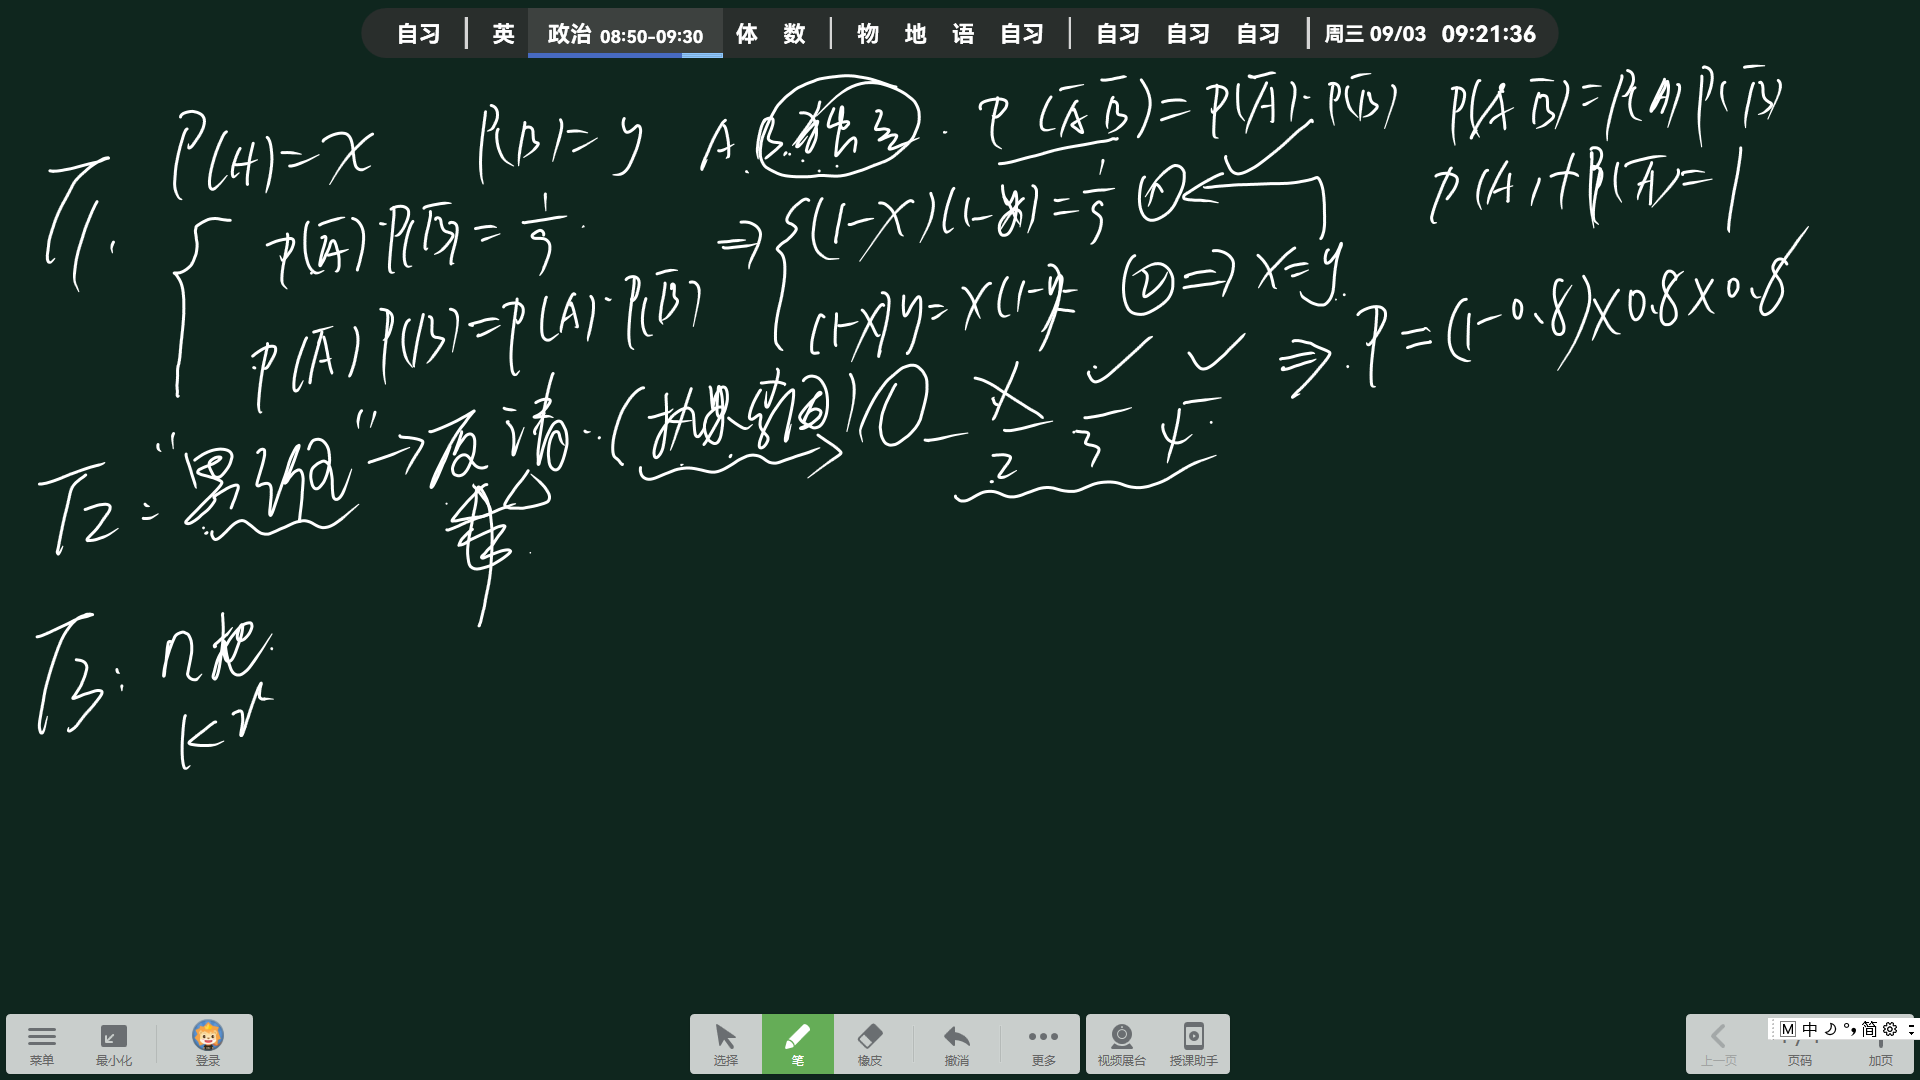 自习 | 英 政治 08:50-09:30 体 数 | 物 地 语 自习 | 自习 自习 自习 | 周三 09/03 09:21:36
T1. P(A)=x P(B)=y A.B.独立. P(A̅ B̅)=P(A̅)·P(B̅) P(A B̅)=P(A)P(B̅)
P(A)+P(A̅)=1
P(A̅)·P(B̅)=1/9. ⇒ (1-x)(1-y)=1/9 ①
P(A̅)P(B)=P(A)·P(B̅) (1-x)y=x(1-y) ②⇒x=y.
⇒.P=(1-0.8)×0.8×0.8
T2: → ① 2 3 4
T3: n把
k次
菜单 最小化 登录 选择 笔 橡皮 撤消 更多 视频展台 授课助手 上一页 页码 加页
M 中 简